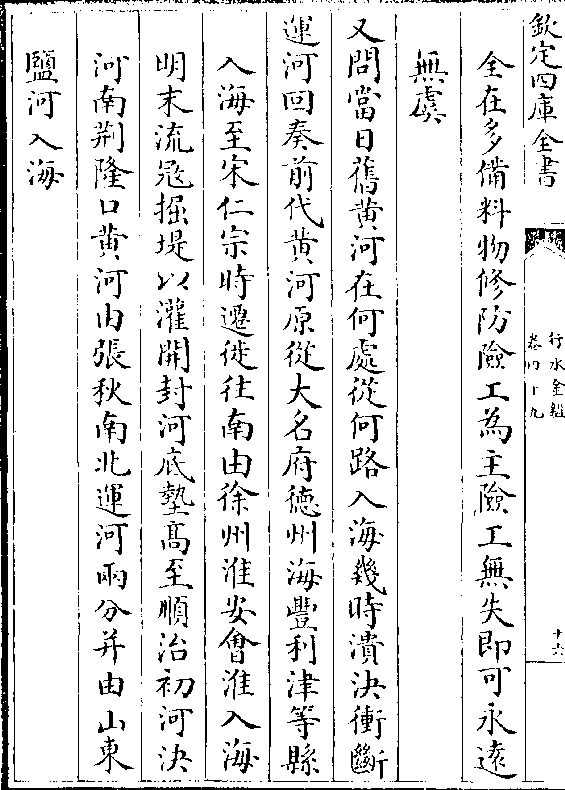 欽定四庫全書
行水金鑑
卷四十九
十六
全在多備料物修防險工為主險工無失即可永遠
無虞
又問當日舊黃河在何處從何路入海幾時潰決衝斷
運河回奏前代黃河原從大名府德州海豐利津等縣
入海至宋仁宗時遷徙往南由徐州淮安會淮入海
明末流宼掘堤以灌開封河底墊髙至順治初河決
河南荆隆口黃河由張秋南北運河兩分并由山東
鹽河入海